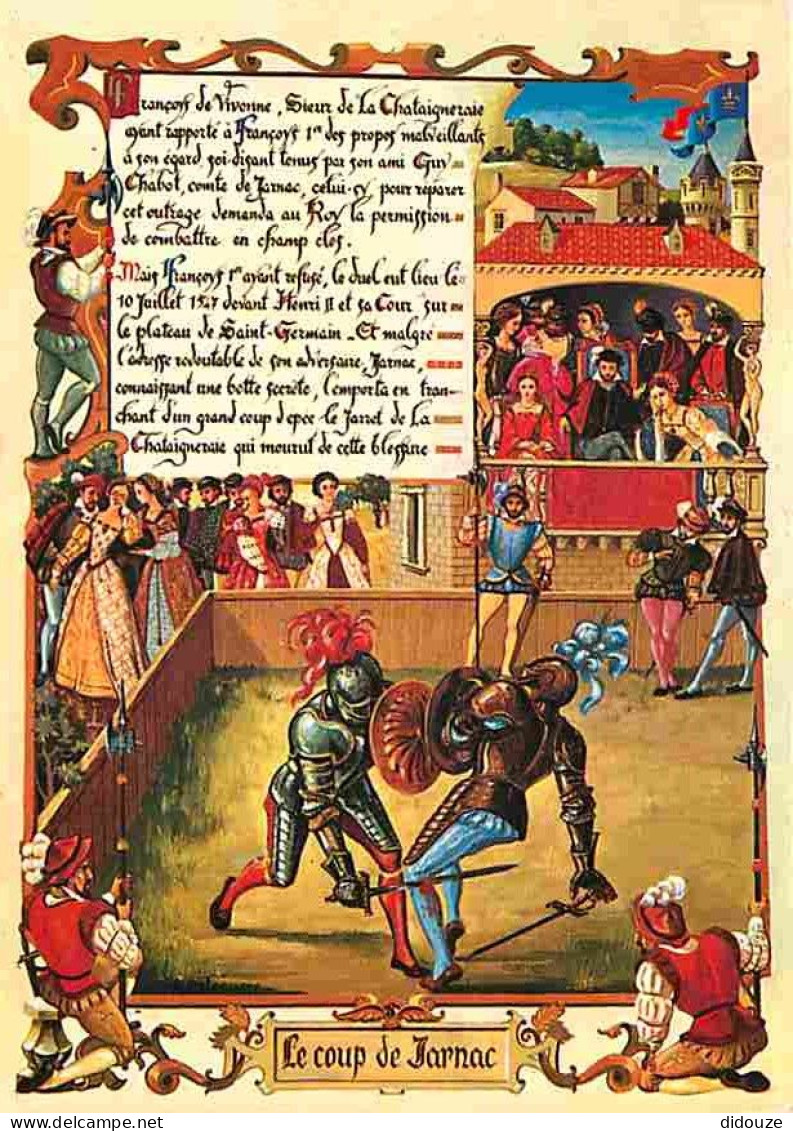 Françoys de Vivonne, Sieur de La Chataigneraie
ayant rapporté à Françoys 1er des propos malveillants
à son egard soi-disant tenus par son ami Guy
Chabot, comte de Jarnac, celui-cy, pour reparer
cet outrage demanda au Roy la permission
de combattre en champ clos.
Mais Françoys 1er ayant refusé, le duel eut lieu le
10 Juillet 1547 devant Henri II et sa Cour sur
le plateau de Saint-Germain - Et malgré
l'adresse redoutable de son adversaire Jarnac,
connaissant une botte secrète, l'emporta en tran-
chant d'un grand coup d'epee le Jarret de La
Chataigneraie qui mourut de cette blessure
Le coup de Jarnac
didouze